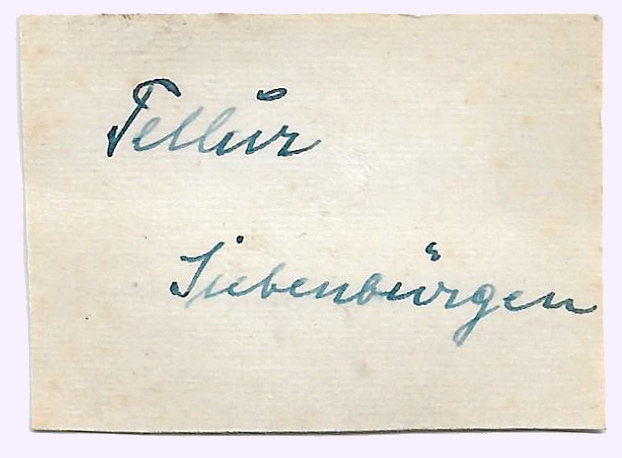 Tellur
Siebenbürgen